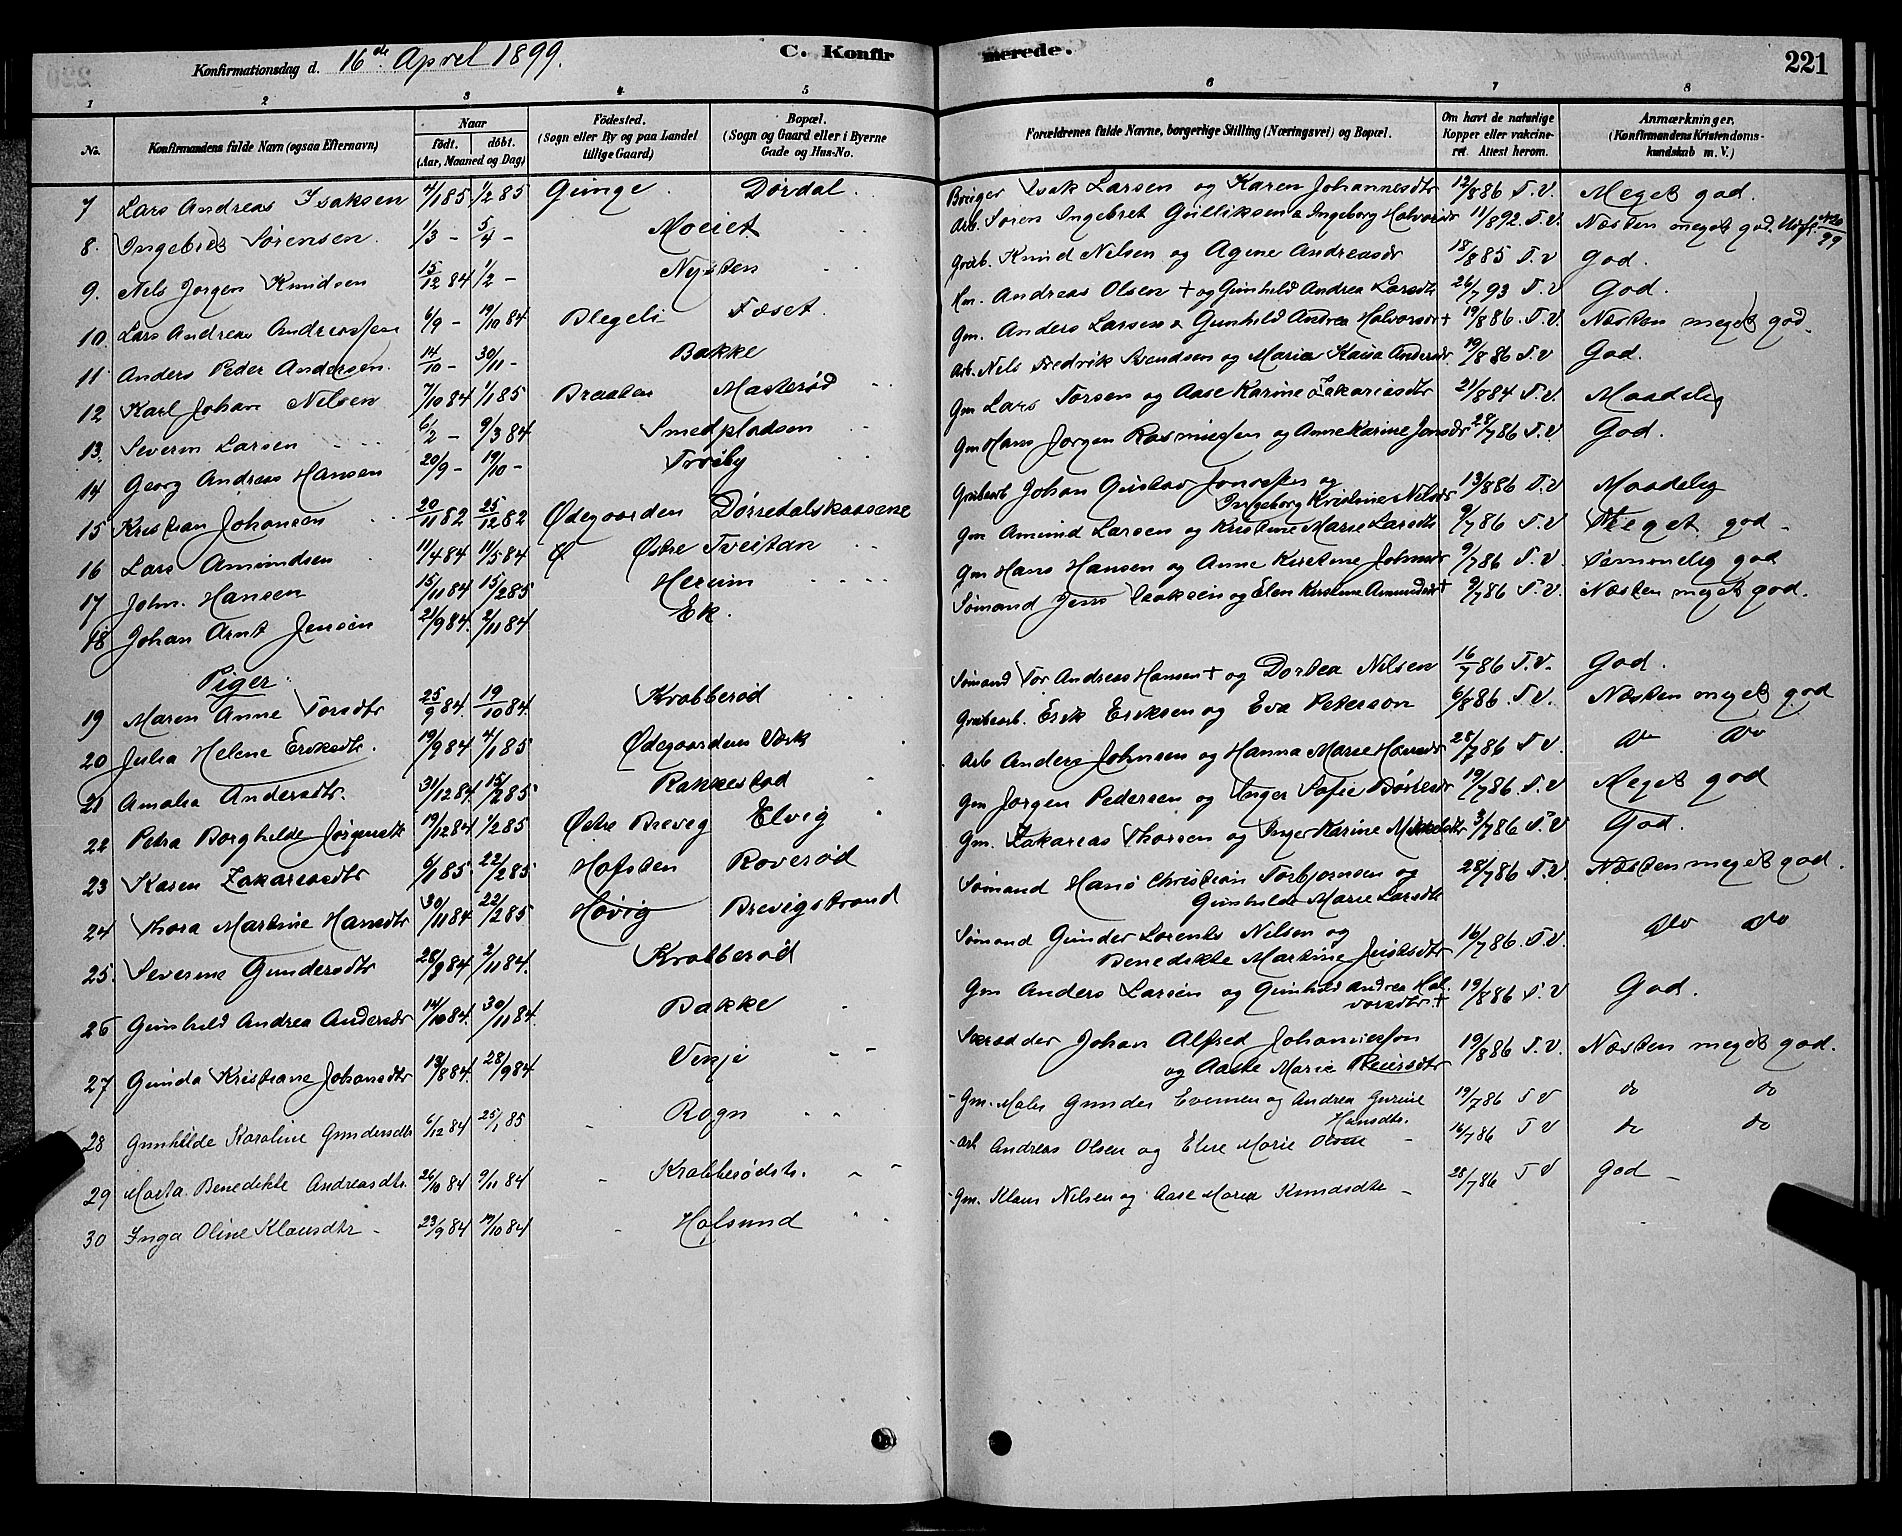 Konfirmationsdag d. 16de April 1899. C. Konfirmerede. 221
1 2 3 4 5 6 7 8
No. Konfirmandens fulde Navn (ogsaa Efternavn) Naar født. døbt. (Aar, Maaned og Dag) Fødested. (Sogn eller By og paa Landet tillige Gaard) Bopæl. (Sogn og Gaard eller i Byerne Gade og Hus-No. Forældrenes fulde Navne, borgerlige Stilling (Næringsvei) og Bopæl. Om havt de naturlige Kopper eller vakcineret. Attest herom. Anmærkninger. (Konfirmandens Kristendomskundskab m. V.)
7 Lars Andreas Isaksen 4/1 85 1/2 85 Gunge. Dørdal. Isak Larsen og Karen Johannesdtr 12/8 86 T.V. Meget god.
8. Ingebret Sørensen. 1/3 - 5/4 - Moeiet Arb. Søren Ingebret Gulliksen & Ingeborg Halvorsdr 11/8 92. T.V. Næsten meget god.
9. Nels Jorgen Knudsen 15/12 84 1/2 - Nysten Grub. Knud Nelsen og Agene Andreasdr 18/8 85 T.V God.
10. Lars Andreas Andreassen 6/9 - 19/10 84 Blegeli Fæset Hm. Andreas Olsen + og Gunhild Andrea Larsdtr 26/7 93 T.V God.
11 Anders Peder Andersen. 14/10 - 30/11 - Bakke Gm. Anders Larsen & Gunhild Andrea Halvorsdr + 19/8 86. T.V. Næsten meget god.
12 Karl Johan Nilsen 7/10 84 1/1 85 Braaten Masterød Arb. Nels Fredrik Svendsen og Maria Kaisa Andersdr 19/8 86 T.V God.
13. Severin Larsen 6/2 - 9/3 84 Smedpladsen Gm Lars Torsen og Aase Karine Zakariasdtr 21/8 84 T.V. Maadelig
14 Georg Andreas Hansen 20/9 - 19/10 - Trosby Gm Hans Jorgen Rasmussen og Anne Karine Jonsdr 28/7 86 T.V God.
15 Kristian Johansen 20/11 82 25/12 82 Ødegaarden Dørredalskaasene Grubearb Johan Gustav Jonassen og Ingeborg Kristine Nilsdr 13/8 86 T.V Maadelig
16 Lars Amundsen 11/4 84 11/5 84 Ø Østre Tveitan Gm Amund Larsen og Kristine Marie Larsdtr 9/7 86 T.V Meget god.
17 John. Hansen 15/11 84 15/2 85 Herum Gm Hans Hansen og Anne Kirstine Johnsdr 9/7 86 T.V. Temmelig god
18 Johan Arnt Jensen 21/9 84. 2/11 84 Ek. Sømand Jens Isaksen og Elen Kirstine Amundsdr + 9/7 86 T.V. Næsten meget god.
Piger.
19 Maren Anne Torsdtr 25/9 84. 19/10 84. Krabberød Sømand Tor Andreas Hansen + og Dortea Nilsen 16/7 86 T.V. God.
20 Julia Helene Eriksdtr. 19/9 84. 4/1 85 Ødegaardens Værk Grubearb. Erik Eriksen og Eva Peterson 6/8 86. T.V. Næsten meget god
21 Amalia Andersdtr. 31/12 84 15/2 85 Rakkestad Arb Anders Johnsen og Hanna Marie Hansdr 28/7 86 T.V. do do
22 Petra Borghilde Jørgensdtr 19/12 84 1/2 85 Østre Brevig Elvig Gm Jorgen Pedersen og Inger Sofie Børresdr 19/7 86. T.V Meget god
23 Karen Zakariasdtr 6/1 85. 22/2 85 Hafsten Roverød Gm. Zakarias Thorsen og Inger Karine Mikkelsdtr 3/7 86 T.V God.
24 Thora Martine Hansdtr 30/11 84. 22/2 85 Høvig Brevigstrand Sømand Hans Christian Torbjornsen og Gunhilde Marie Larsdtr 28/7 86 T.V. Næsten meget god.
25. Severine Gundersdtr 28/9 84 2/11 84. Krabberød Sømand Gunder Lorents Nilsen og Benedikte Martine Justsdtr 16/7 86. T.V. do do
26 Gunhild Andrea Andersdr 14/10 84. 30/11 84. Bakke Gm Anders Larsen og Gunhild Andrea Halvorsdtr. + 19/8 86 T.V God.
27 Gunda Kristiane Johansdtr 14/8 84. 28/9 84 Venje Skrædder Johan Alfred Johannessen og Aaste Marie Reiersdtr 19/8 86 T.V. Næsten meget god.
28 Gunhilde Karoline Gundersdtr 6/12 84 25/1 85 - Rogn - Gm. Maler Gunder Evensen og Andrea Gurine Hansdtr. 19/7 86 T V do do
29 Marta Benedikte Andreasdtr. 26/10 84 9/11 84 - Krabberødstr. - Arb Andreas Olsen og Elise Marie Olsen - 16/7 86 T V do do
30 Inga Oline Klausdtr - 23/9 84 19/10 84 - Hafsund - Gm. Klaus Nilsen og Aase Maria Knudsdtr - 28/7 86 T V God -